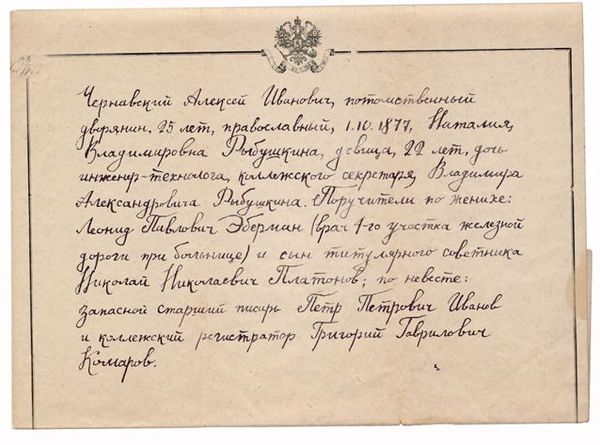 Чернавский Алексей Иванович, потомственный
дворянин. 25 лет, православный, 1.10.1877, Наталия,
Владимировна Рыбушкина, девица, 22 лет, дочь
инженер-технолога, коллежского секретаря, Владимира
Александровича Рыбушкина. Поручители по женихе:
Леонид Павлович Эберман (врач 1-го участка железной
дороги при больнице) и сын титулярного советника
Николай Николаевич Платонов; по невесте:
запасной старший писарь Петр Петрович Иванов
и коллежский регистратор Григорий Гаврилович
Комаров.